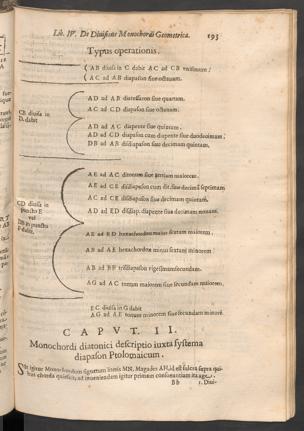 Lib. IV. De Divisione Monochordi Geometrica. 193
Typus operationis.
AB divisa in C dabit AC ad CB unisonum;
AC ad AB diapason sive octavam.
CB divisa in
D. dabit
AD ad AB diatessaron sive quartam.
AC ad CD diapason sive octavam;
AD ad AC diapente sive quintam.
AD ad CD diapason cum diapente sive duodecimam;
DB ad AB disdiapason sive decimam quintam.
CD divisa in
puncto E
vel
DB in puncto
F dabit,
AE ad AC ditonum sive tertiam maiorem.
AE ad CE disdiapason cum dit. sive decimã septimam
AC ad CE disdiapason sive decimam quintam.
AD ad ED disdiap. diapente sive decimam nonam.
AE ad ED hexachordon maius sextam maiorem.
AB ad AE hexachordon minus sextam minorem
AB ad BF trisdiapason vigesimamsecundam.
AG ad AC tonum maiorem sive secundam maiorem,
EC divisa in G dabit
AG ad AE tonum minorem sive secundam minorẽ.
CAPVT. II.
Monochordi diatonici descriptio iuxta systema
diapason Ptolomaicum.
Sit igitur Monochordon signatum literis MN, Magades AH, id est fulcra supra qui-
bus chorda quiescit, ad inveniendam igitur primam consonantiam ita age.
Bb 1. Divi-